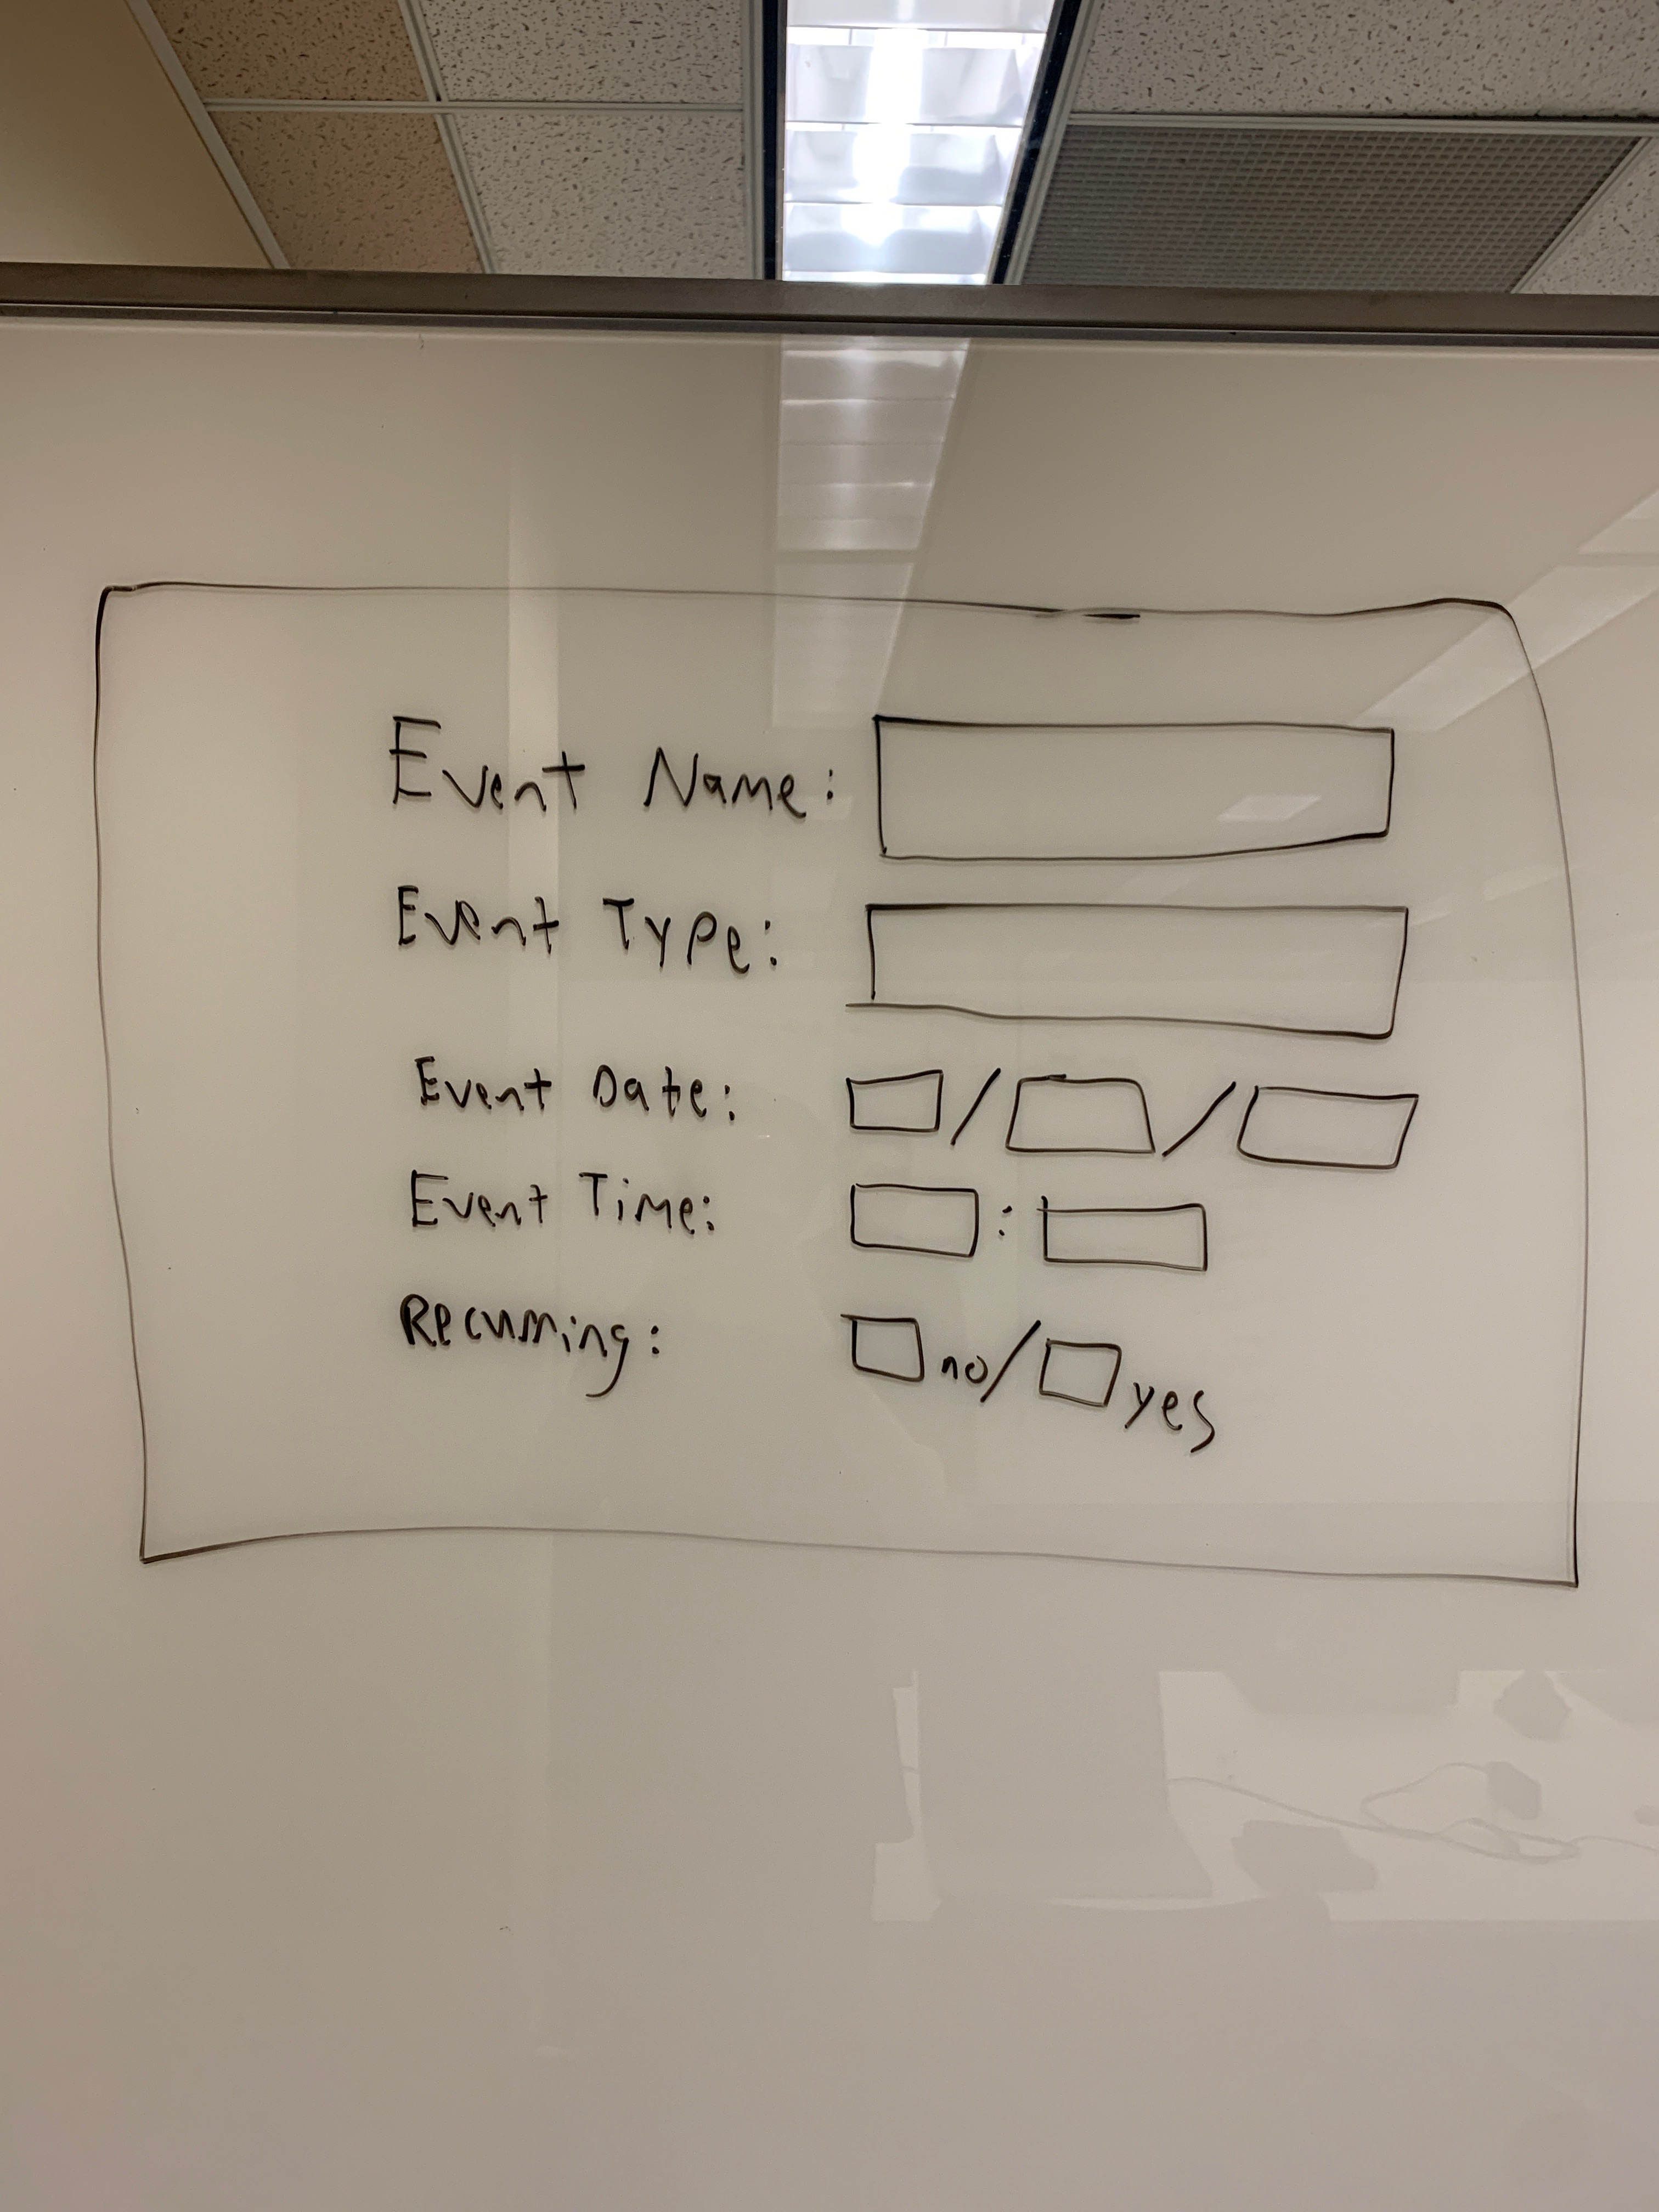 Event Name:
Event Type:
Event Date: / /
Event Time: :
Recurring: no/ yes